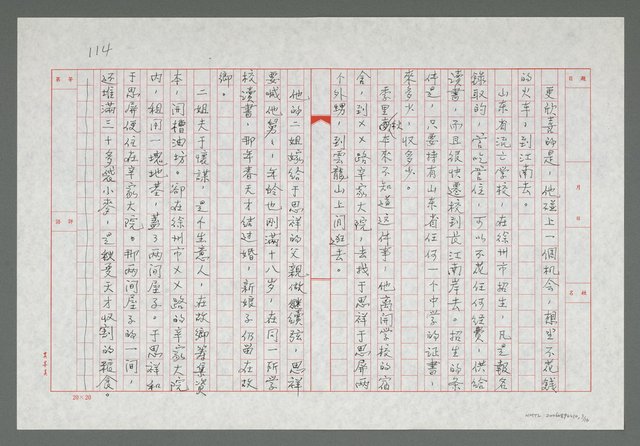 114
題目
月
日
姓名
第 頁
評語
更欣喜的是，他碰上一個機會，想坐不花錢
的火車，到江南去。
山東省流亡學校，在徐州市招生，凡是報名
錄取的，管吃管住，可以不花任何經費，供給
讀書，而且很快遷校到長江南岸去。招生的條
件是，只要持有山東省任何一個中學的證書，
來多少，收多少。
季里秋本來不知道這件事，他離開學校的宿
舍，到××路辛家大院，去找于思祥于思屏兩
個外甥，到雲龍山上閒逛去。
他的二姐嫁給于思祥的父親做繼弦，思祥
要喊他舅舅，年齡也剛滿十八歲，在同一所學
校讀書，那年春天才結過婚，新娘子仍留在故
鄉。
二姐夫于懷謀，是個生意人，在故鄉籌集資
本，開槽油坊。卻在徐州市××路的辛家大院
內，租用一塊地基，蓋了兩間屋子。于思祥和
于思屏便住在辛家大院。那兩間屋子的一間，
還堆滿三十多袋小麥，是秋麥天才收割的糧食。
20×20
NMTL